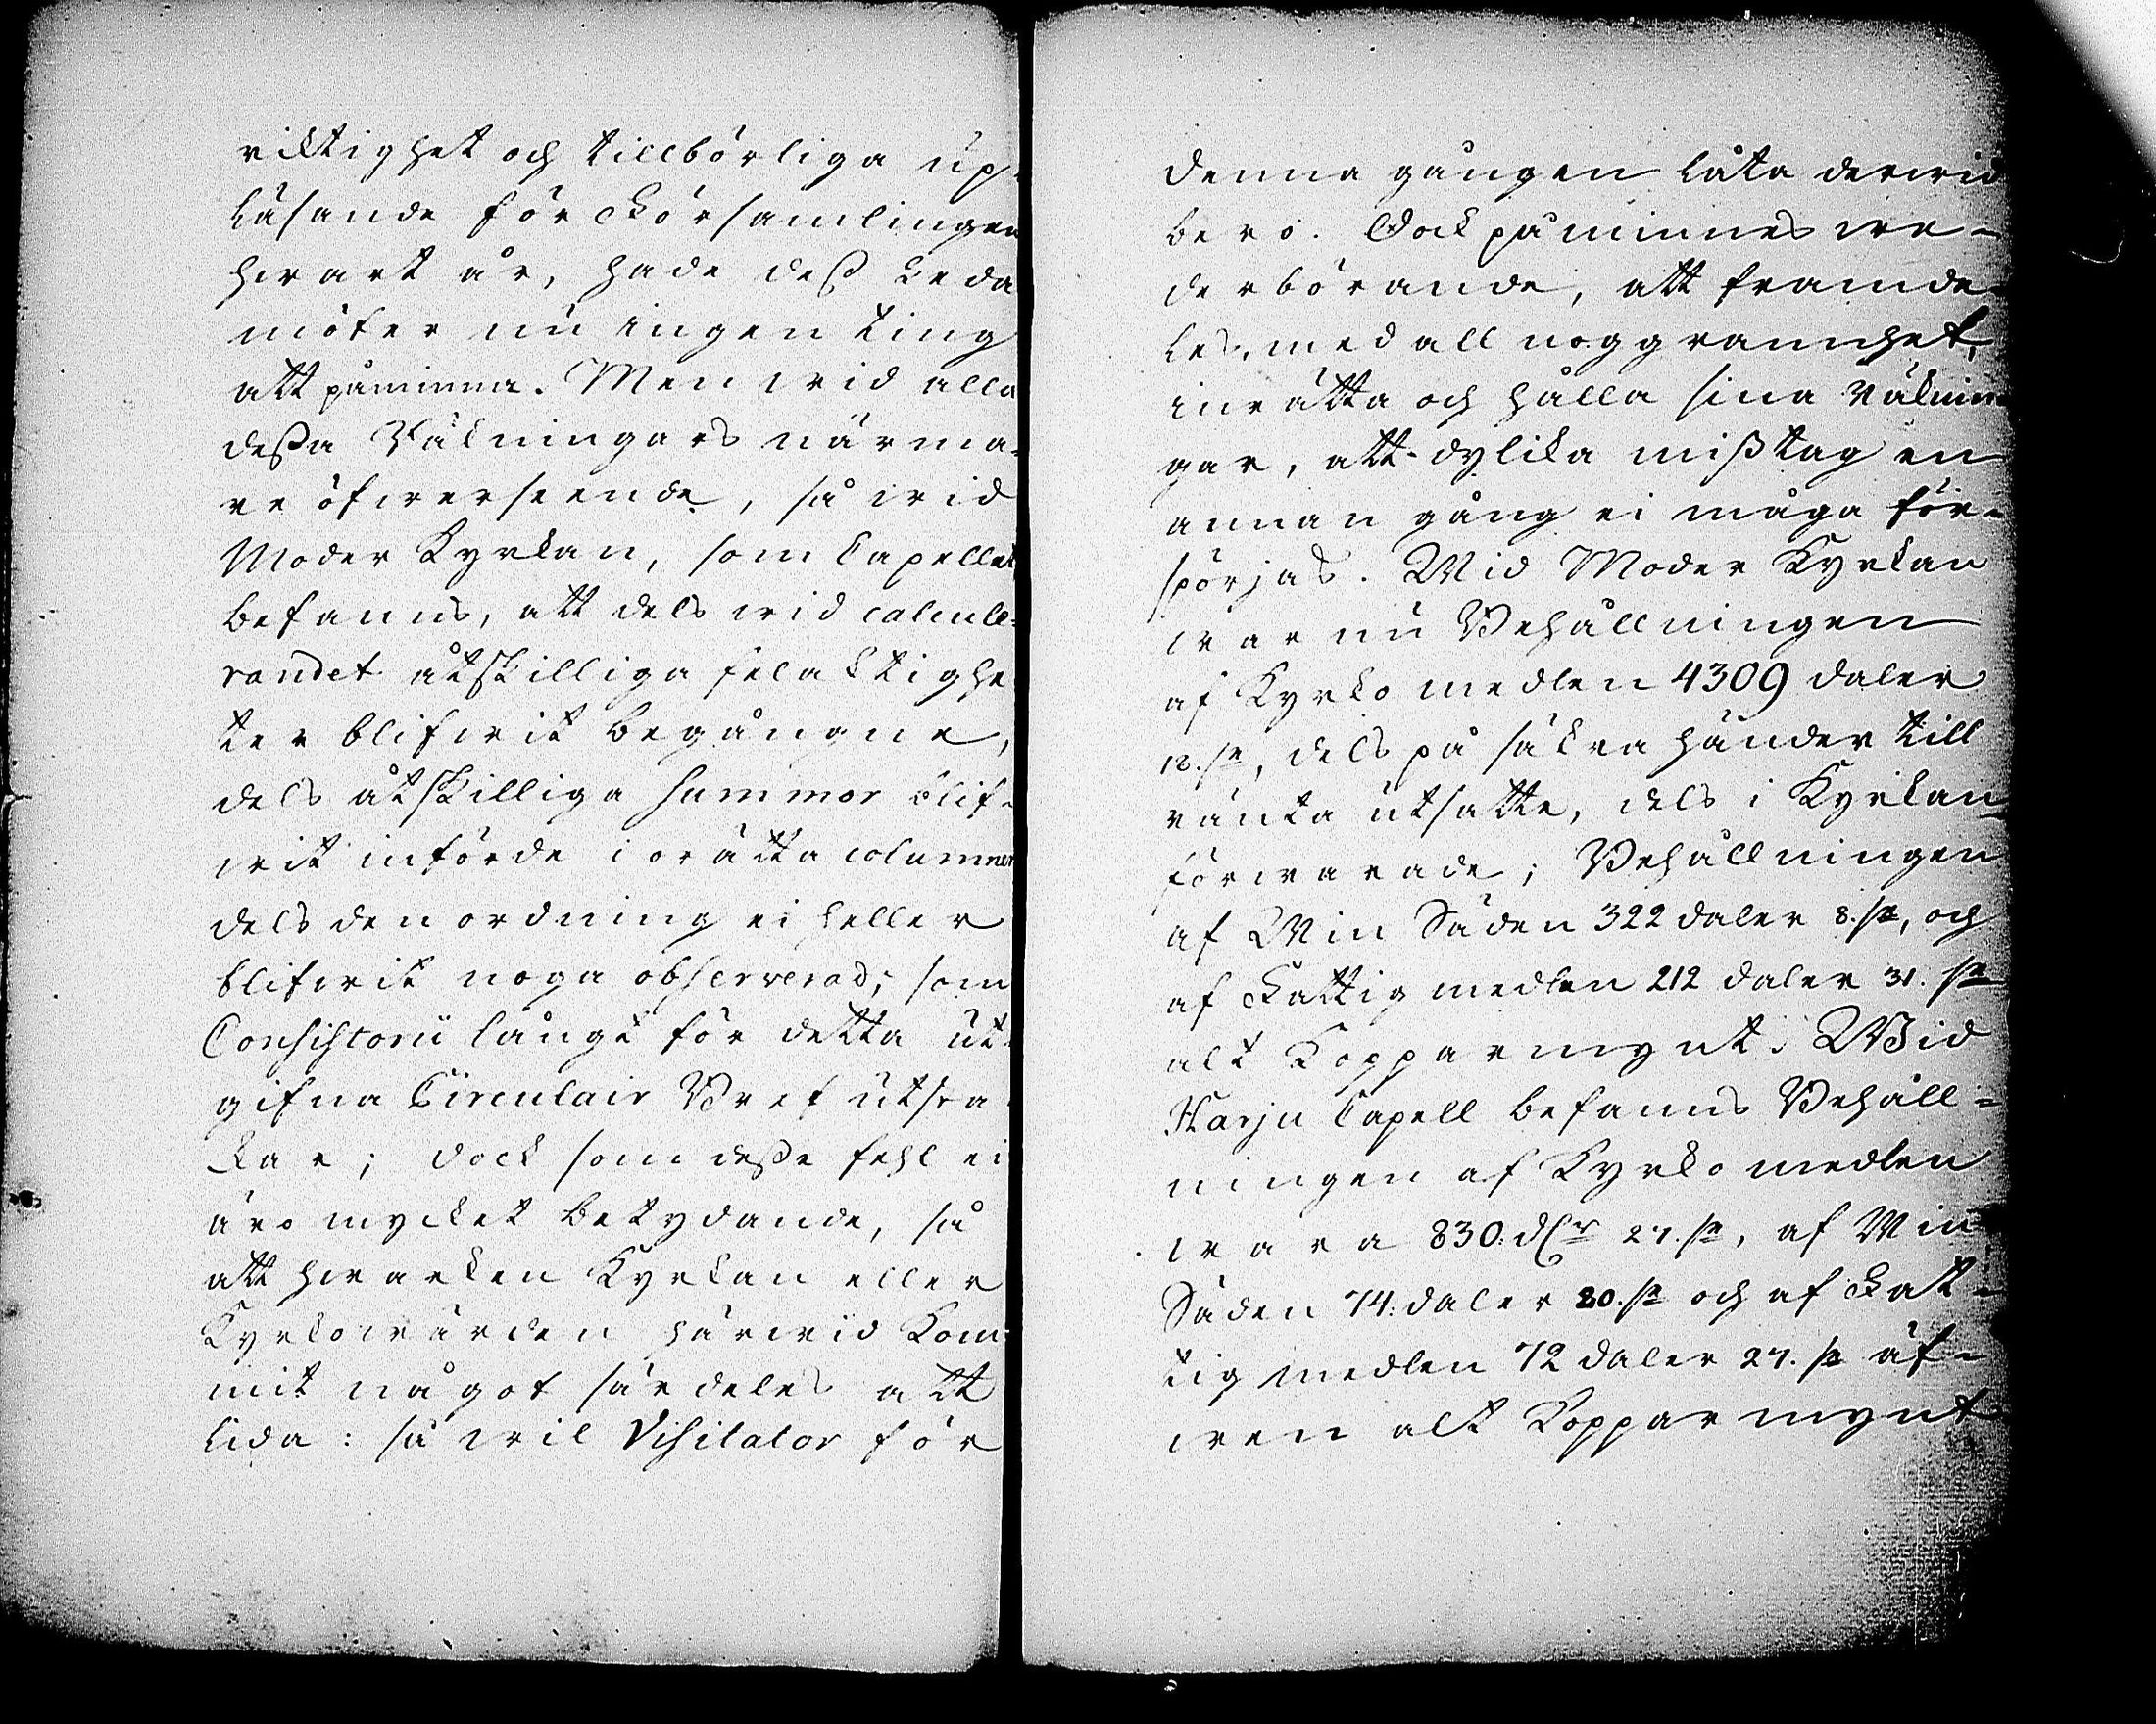 riktighet och tillbörliga up-
läsande för Församlingen
hwart år, hade dess Leda
möter nu ingen ting
att påminna. Men wid alla
dessa Räkningars närma-
re öfwerseende, så wid
Moder Kyrkan, som Capellet,
befanns, att dels wid calcule-
randet åtskilliga felaktighe
ter blifwit begångne,
dels åtskilliga summor blif-
wit införde i orätta columner
dels den ordning ei heller
blifwit noga observerad, som
Consistorii långt för detta ut-
gifna Circulair Bref utsta-
kar; dock som desse fehl ei
äro mycket betydande, så
att hwarken Kyrkan eller
Kyrkowärden härwid kom-
mit något särdeles att
lida: så wil Visitator för
denna gången låta derwid
bero. Dock påminnes we-
derbörande, att framde-
les, med all noggrannhet,
inrätta och hålla sina räknin-
gar, att dylika misstag en
annan gång ei måga för-
spörjas. Wid Moder Kyrkan
war nu Behållningen
af Kyrko medlen 4309 daler
18. sr, dels på säkra händer till
ränta utsatte, dels i Kyrkan
förwarade; Behållningen
af Win Säden 322 daler 8. sr, och
af Fattig medlen 212 daler 31. sr
alt Kopparmynt. Wid
Harju Capell befanns Behåll-
ningen af Kyrko medlen
wara 830. dlr 27. sr, af Win
Säden 74. daler 20. sr och af Fat-
tig medlen 72 daler 27. sr äf-
wen alt Kopparmynt